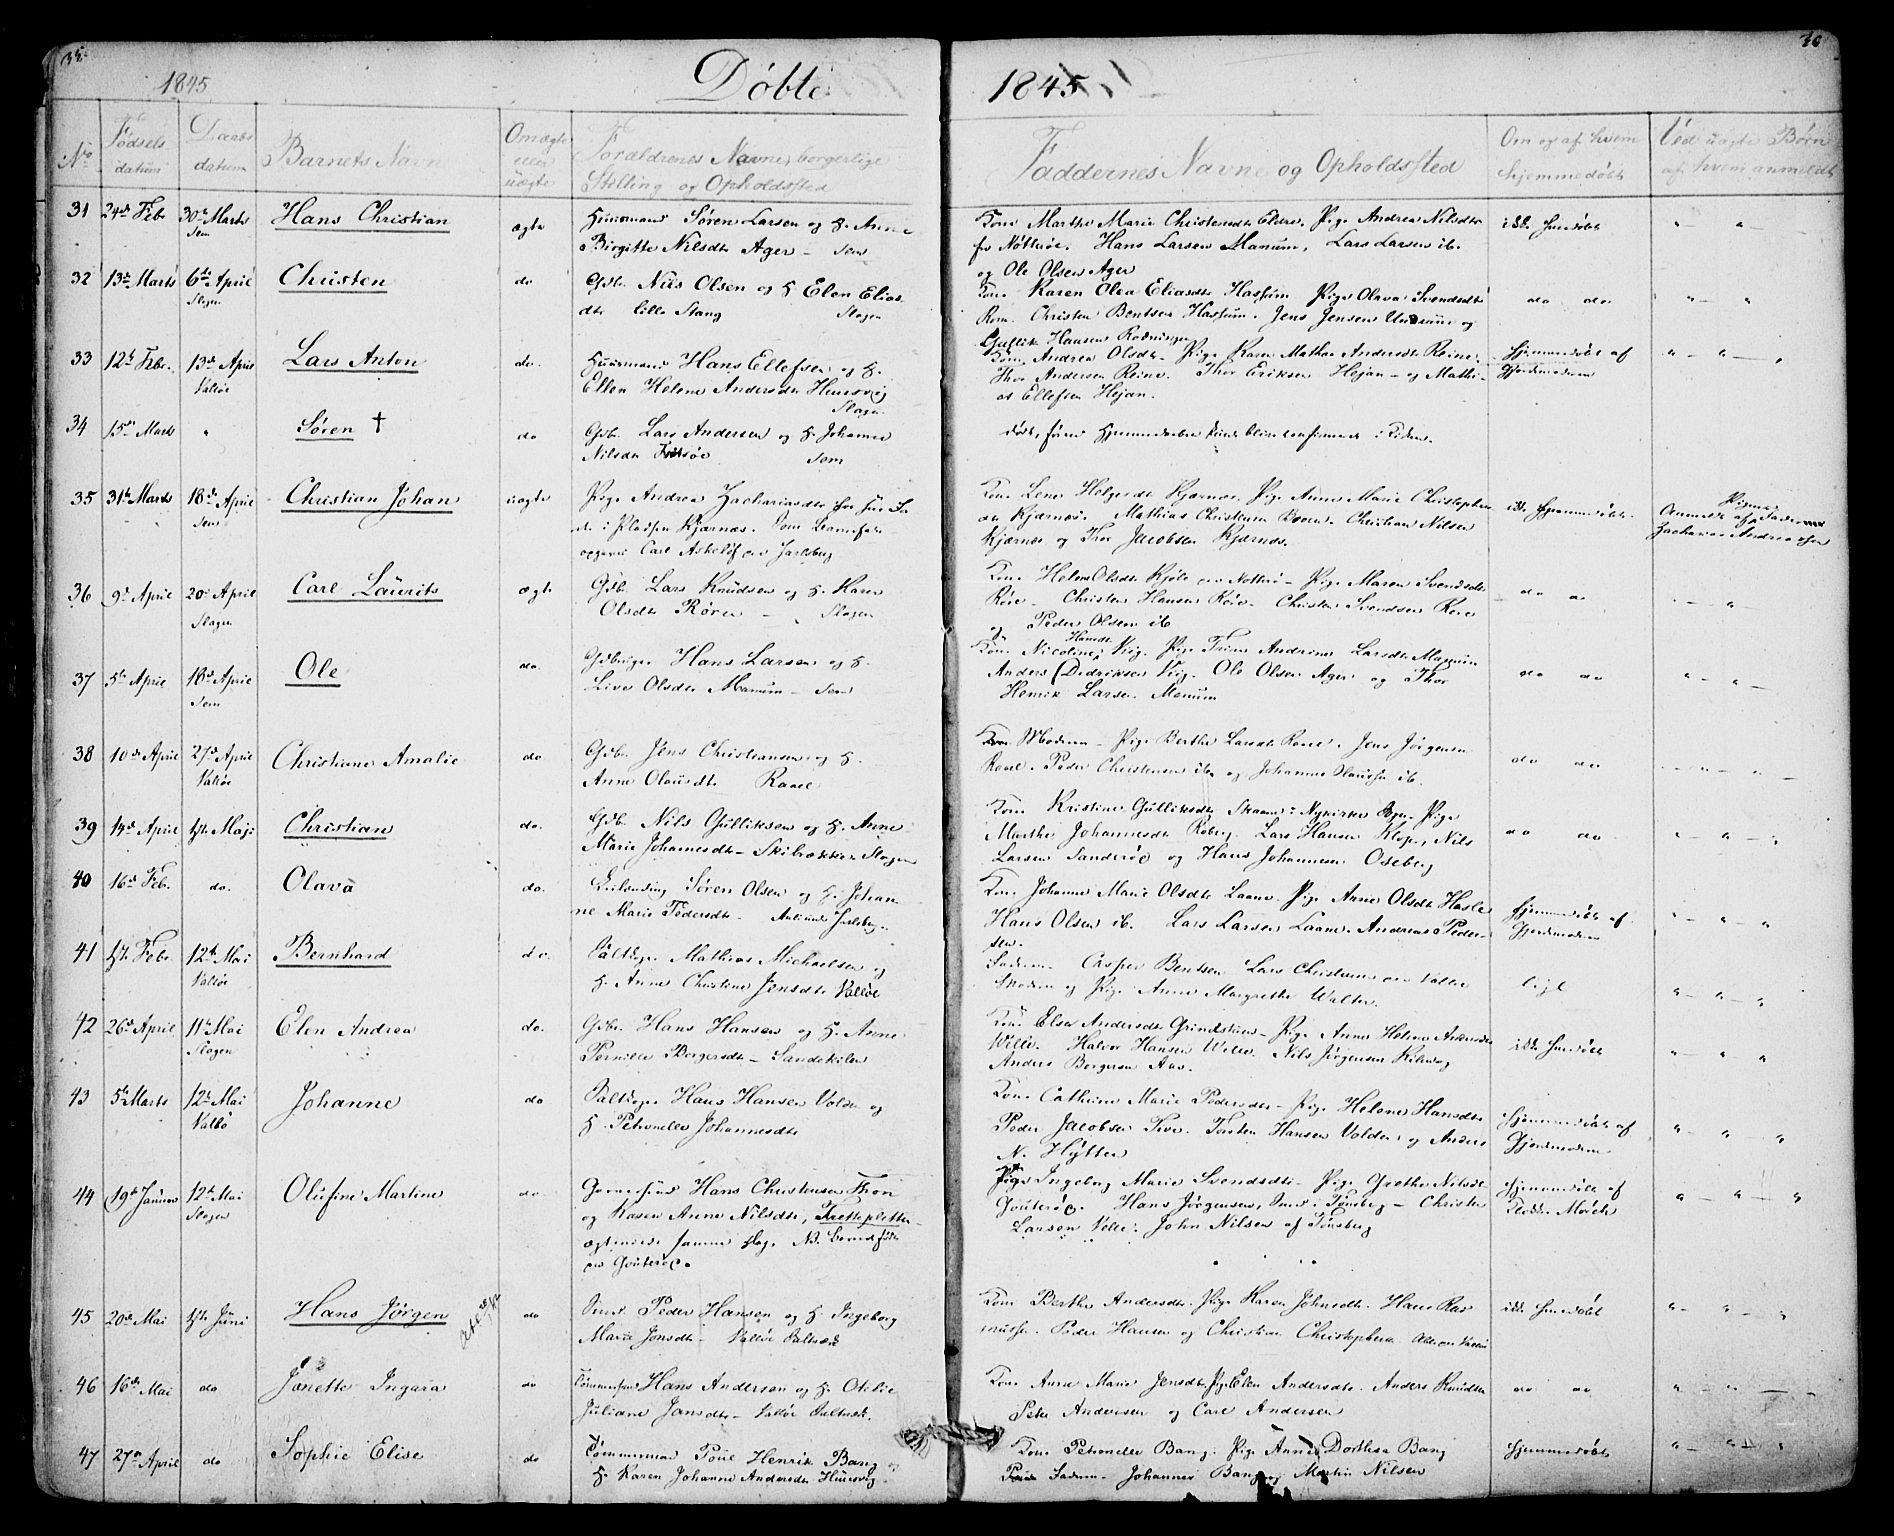 35
36
1845
Döbte
1845
No
Födsels datum
Daabs datum
Barnets Navn
Om ægte eller uægte
Forældrenes Navne, borgerlige Stilling og Opholdssted
Faddernes Navne og Opholdssted
Om og af hvem hjemmedøbt
Ved uægte Børn af hvem anmeldt
31 24de Febr 30te Marts Sem Hans Christian ægte Huusmand Sören Larsen og H. Anne
Birgitte Nilsdt Ager - Sem
Kone Marthe Marie Christensdt Pige Andrea Nilsdt
fra Nötteröe. Hans Larsen Manum, Lars Larsen ib.
og Ole Olsen Ager
32 13de Marts 6te April Slagen Christen do Gdb. Nils Olsen og H Elen Elias
dt lille Stang Slagen
Kone Karen Olea Eliasdt Hassum Pige Olava Svendsdt
Rom. Christen Bentsen Hassum. Jens Jensen Undrum og
Gullik Hansen
do do
33 12te Febr. 13de April Vallöe Lars Anton do. Huusmand Hans Ellefsen og H.
Ellen Helene Andersdt Huusvig
Slagen
Kone Andrea Olsdt - Pige Karen Mathea Andersdt Reine.
Thor Andersen Reine. Thor Eriksen Hejan - og Mathi-
as Ellefsen Hejan.
Hjemmedöbt af
Gjordmoderen
34 15de Marts " Sören † do Gdb. Lars Andersen og H. Johanne
Nilsdt Sem
döde, förend Hjemmedaaben kunde blive confirmeret i Kirken.
35 31te Marts 18de April Sem Christian Johan uægte Pige Andrea Zachariasdt
i Pladsen Kjærnæs. Som Barnefader
opgivet Carl Askelöf paa Jarlsberg
Kone Lene Holgersdt Kjærnæs. Pige Anne Marie Christophers
dt Kjærnæs. Mathias Christensen Christian Nilsen
Kjærnæs og Thor Jacobsen Kjærnæs.
ikke Hjemmedöbt
Anmeldt af Pigens Fader
Zacharias Andreassen
36 9de April 20de April Slagen Carl Laurits ægte Gdb. Lars Knudsen og H. Karen
Olsdt Rören - Slagen
Kone Helene Olsdt Kjöle paa Nötterö - Pige Maren Svendsdt
Röre - Christen Hansen Röre. Christen Svendsen Röre
og Peder Olsen ib
do do
37 5te April 18de April Sem Ole do. Gdbruger Hans Larsen og H.
Live Olsdt Manum - Sem
Kone Nicoline Hansdt Vig. Pige Trine Andrine Larsdt Manum
Anders Didriksen Vig. Ole Olsen Ager og Thor
Henrik Larsen Manum
do do
38 10de April 27de April Vallöe Christiane Amalie do Gdbr. Jens Christiansen og H.
Anne Olausdt Raael
Kone Moderen - Pige Berthe Larsdt Raael. Jens Jörgensen
Raael. Peder Christensen ib. og Johannes Olaussen ib.
do do
39 14de April 1ste Maji Christian do. Gdb. Nils Gulliksen og H. Anne
Marie Johannesdt - Skibrækken Slagen
Kone Kristine Gulliksdt i Nykirke Sogn. Pige
Marthe Johannesdt Roberg. Lars Hansen Klop, Nils
Larsen Sanderöe og Hans Johannesen Oseberg
do do
40 16de Febr. do. Olava do. Sören Olsen og H. Johan-
ne Marie Pedersdt - Jarlsberg
Kone Johanne Marie Olsdt Laane. Pige Anne Olsdt Hasle
Hans Olsen ib. Lars Larsen Laane. Andreas Peder-
sen.
Hjemmedöbt af
Gjordmoderen
41 1ste Febr. 12te Mai Vallöe Bernhard do. Saltsyd. Mathias Michaelsen og
H. Anne Christine Jensdt Vallöe
Faderen - Casper Bentsen Lars Christensen paa Vallöe
Moderen og Pige Anne Margrethe Walter.
ligl
42 26de April 11te Mai Slagen Elen Andrea do. Gdbr. Hans Hansen og H. Anne
Pernille Borgersdt - Sandekilen
Kone Else Andersdt Grindstuen - Pige Anne Helene Andersdt
Wille. Halvor Hansen Wille. Nils Jörgensen
Anders Borgersen Aas.
ikke Hmedöbt
43 5te Marts 12te Mai Vallö Johanne do Hans Hansen Volden og
H. Petronelle Johannesdt
Kone Cathrine Marie Pedersdt - Pige Helene Hansdt
Peder Jacobsen Torsten Hansen Volden og Anders
N. Hytten
Hjemmedöbt af
Gjordmoderen
44 19de Januar 12te Mai Slagen Olufine Martine do. Hans Christensen Fron
og Karen Anne Nilsdt, Trettepletten
ægteviede samme Dag. NB. Barnet född
paa Gouteröe.
Pige Ingeborg Marie Svendsdt - Pige Grethe Nilsdt
Gouteröe. Hans Jörgensen, Tönsberg - Christen
Larsen Velle. John Nilsen af Tönsberg
Hjemmedöbt af
45 20de Mai 1ste Juni Hans Jörgen do Peder Hansen og H. Ingeborg
Marie Jonsdt - Vallöe Saltværk
Kone Berthe Andersdt. Pige Karen Johnsdt. Hans Ras
musse. Peder Hansen og Christian Christophersen Alle paa Vallöe
ikke Hmedöbt
46 16de Mai do Janette Ingara do Tömmermand Hans Andersen og H. Otelie
Juliane Jansdt - Vallöe Saltværk.
Kone Anne Marie Jensdt. Pige Elen Andersdt. Anders Knudsen
Peter Andersen og Carl Andersen
do do
47 27de April do Sophie Elise do Tömmermand Poul Henrik Bang og
H. Karen Johanne Andersdt Huusvig.
Kone Petronelle Bang. Pige Anne Dorthea Bang
Faderen - Johannes Bang og Martin Nilsen
Hjemmedöbt